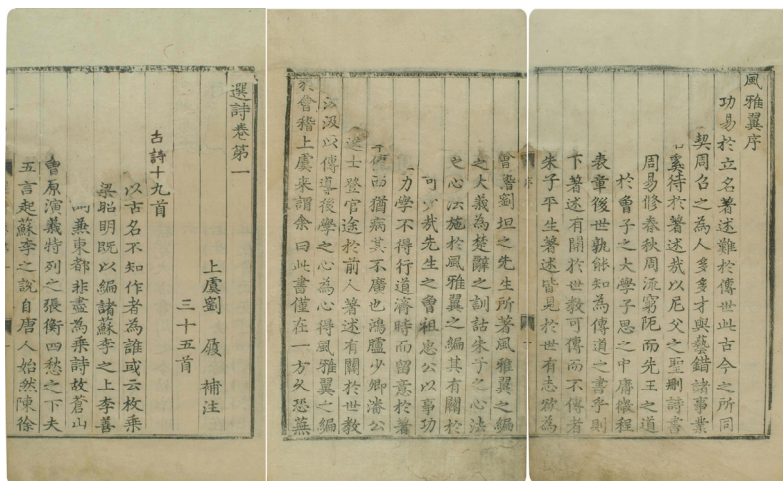 風雅翼序
功易於立名著述難於傳世此古今之所同
契周召之為人多多才與藝錯諸事業
奚待於著述哉以尼父之聖刪詩書
周易修春秋周流窮阨而先王之道
於曾子之大學子思之中庸微程
表章後世孰能知為傳道之書乎則
下著述有關於世教可傳而不傳者
朱子平生著述皆見於世有志欲為
劉坦之先生所著風雅翼之編
之大義為楚辭之訓詁朱子之心法
之心法施於風雅翼之編其有關於
可少哉先生之曾祖忠公以事功
力學不得行道濟時而留意於著
而猶病其不廣也鴻臚少卿潘公
進士登官途於前人著述有關於世教
汲以傳導後學之心為心得風雅翼之編
於會稽上虞來謂余曰此書僅在一方久恐蕪
選詩卷第一
上虞劉履補注
三十五首
古詩十九首
以古名不知作者為誰或云枚乘
梁昭明既以編諸蘇李之上李善
兼東都非盡為乘詩故蒼山
曾原演義特列之張衡四愁之下夫
五言起蘇李之說自唐人始然陳徐